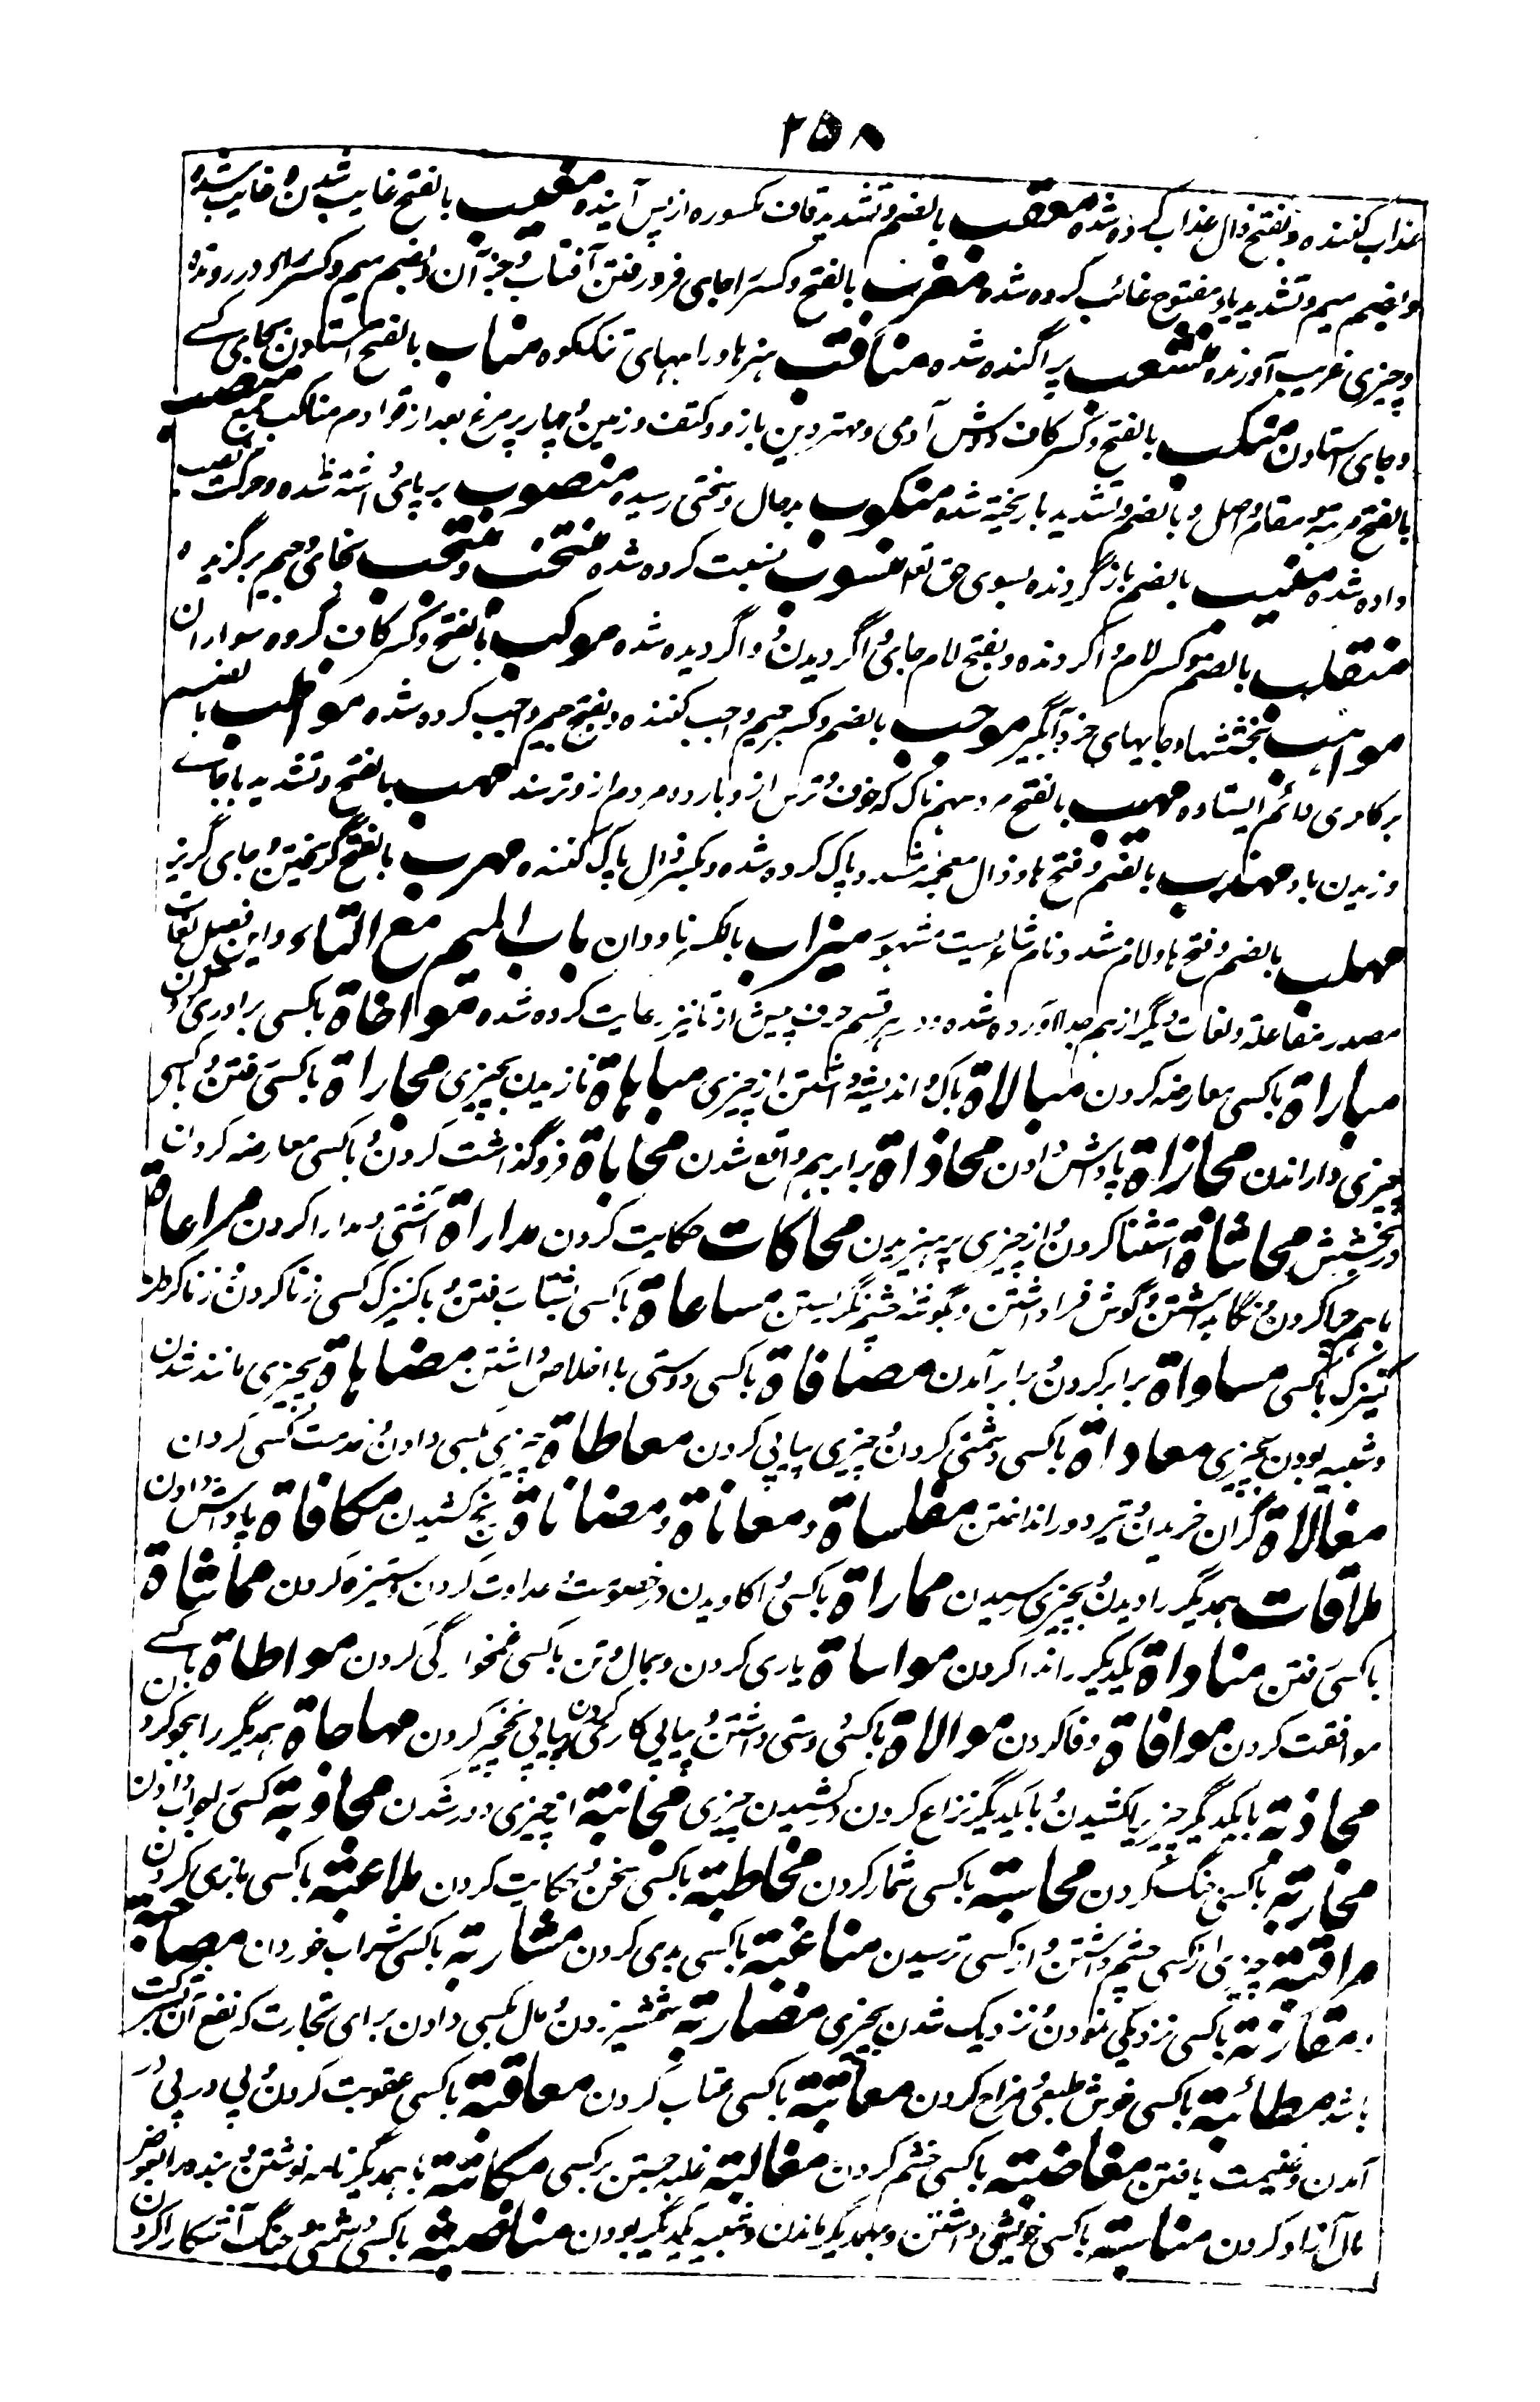 ۲۵۸
عذاب کننده و بفتح ذال عذاب کرده شده معقب بالضم و تشدید قاف مکسوره از پس آینده مغیب بالفتح غایب شدن و غایب شده
و بضم میم و تشدید یاء مفتوح غائب کرده شده مغرب بالفتح و کسر را جای فرو رفتن آفتاب و جز آن و بضم میم و کسر راء در رونده
و چیزی غریب آورنده منشعب پراگنده شده مناقب هنرها و راههای تنگ کوه مناب بالفتح استادن بجای کسے
و جای استادن منکب بالفتح و کسر کاف دوش آدمی و مهتر دین بازو و کتف و زمین و چار پر مرغ بعد از قوادم مناکب جمع منصب
بالفتح مرتبه و مقام و اصل و بالضم و تشدید با ریخته شده منکوب بدحال و سختی رسیده منصوب برپای داشته شده و حرکت نصب
داده شده منیب بالضم باز گردنده بسوی حق تعا منسوب نسبت کرده شده منتخب و منتجب بخای و جیم برگزیده
منقلب بالضم و کسر لام واگردنده و بفتح لام جای واگردیدن و واگردیده شده موکب بالفتح و کسر کاف گروه سواران
مواهب بخششها و جایهای خرد آبگیر موجب بالضم و کسر جیم واجب کننده و بفتح جیم واجب کرده شده مواظب بالضم
بر کاری دائم ایستاده مهیب بالفتح مرد سهم ناک که خوف و ترس از و بارد و مردم از و ترسند مهب بالفتح و تشدید با جاے
وزیدن باد مهذب بالضم و فتح ها و ذال معجمه مشدد پاک کرده شده و بکسر ذال پاک کننده مهرب بالفتح گریختن و جای گریز
مهلب بالضم و فتح ها و لام مشدد نام شاعریست مشهور میزاب بالکسر ناودان باب المیم مع التاء و این فصل لغات
مصدر مفاعلة و لغات دیگر از هم جدا آورده شده و در هر قسم حرف پیش از تا نیز رعایت کرده شده مواخاة باکسی برادری کردن
مباراة باکسی معارضه کردن مبالاة باک و اندیشه داشتن از چیزی مباهاة نازیدن بچیزی مجاراة باکسی رفتن و باکسی
چیزی وا راندن مجازاة پاداش دادن محاذاة برابر هم واقع شدن محاباة فروگذاشت کردن و باکسی معارضه کردن
در بخشش محاشاة استثنا کردن و از چیزی پرهیزیدن محاکات حکایت کردن مداراة آشتی و مدارا کردن مراعاة
باهم چرا کردن و نگاه داشتن و گوش فرا داشتن و بگوشه چشم نگریستن مساعاة باکسی بشتاب رفتن و با کنیزک کسی زنا کردن و زنا کردن
کنیزک باکسی مساواة برابر کردن و برابر آمدن مصافاة باکسی دوستی با اخلاص داشتن مضاهاة بچیزی مانند شدن
و شبیه بودن بچیزی معاداة باکسی دشمنی کردن و چیزی پیاپی کردن معاطاة چیزی بکسی دادن و خدمت کسی کردن
مغالاة گران خریدن و تیر دور انداختن مقاساة و معاناة و مضاناة رنج کشیدن مکافاة پاداش دادن
ملاقات همدیگر را دیدن و بچیزی رسیدن مماراة باکسی واکاویدن و خصومت و عداوت کردن و ستیزه کردن مماشاة
باکسی رفتن مناداة یکدیگر را ندا کردن مواساة یاری کردن و بمال و تن باکسی غمخوارگی کردن مواطاة باکسے
موافقت کردن موافاة وفا کردن موالاة باکسی دوستی داشتن و پیاپی کار کردن و پیاپی نخچیر کردن مهاجاة همدیگر را هجو کردن
مجاذبة با یکدیگر چیزی را کشیدن و با یکدیگر نزاع کردن و کشیدن چیزی مجانبة از چیزی دور شدن مجاوبة کسی را جواب دادن
محاربة باکسی جنگ کردن محاسبة باکسی شمار کردن مخاطبة باکسی سخن و حکایت کردن ملاعبة باکسی بازی کردن
مراقبة چیزی از کسی چشم داشتن و از کسی ترسیدن مناغبة باکسی بدی کردن مشاربة باکسی شراب خوردن مصاحبة
و مقاربة باکسی نزدیکی نمودن و نزدیک شدن بچیزی مضاربة شمشیر زدن و مال بکسی دادن برای تجارت که نفع آن شرکت
باشد مطائبة باکسی خوش طبعی و مزاح کردن معاتبة باکسی عتاب کردن معاقبة باکسی عقوبت کردن و پی در پی در
آمدن و غنیمت یافتن مغاضبة باکسی خشم کردن مغالبة غلبه جستن بر کسی مکاتبة با همدیگر نامه نوشتن و بنده را بعوض
مال آزاد کردن مناسبة باکسی خویشی داشتن و بهمدیگر ماندن و شبیه یکدیگر بودن مناصبة باکسی دشمنی و جنگ آشکارا کردن